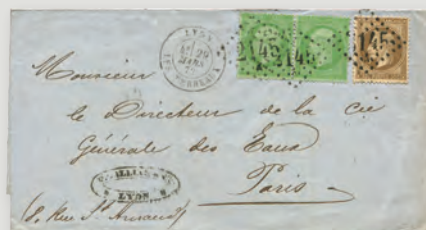 LYON
29
MARS
LES TERREAUX
2145
2145
2145
Monsieur
le Directeur de la cie
Générale des Eaux
Paris
LYON
(8, Rue St Arnaud)